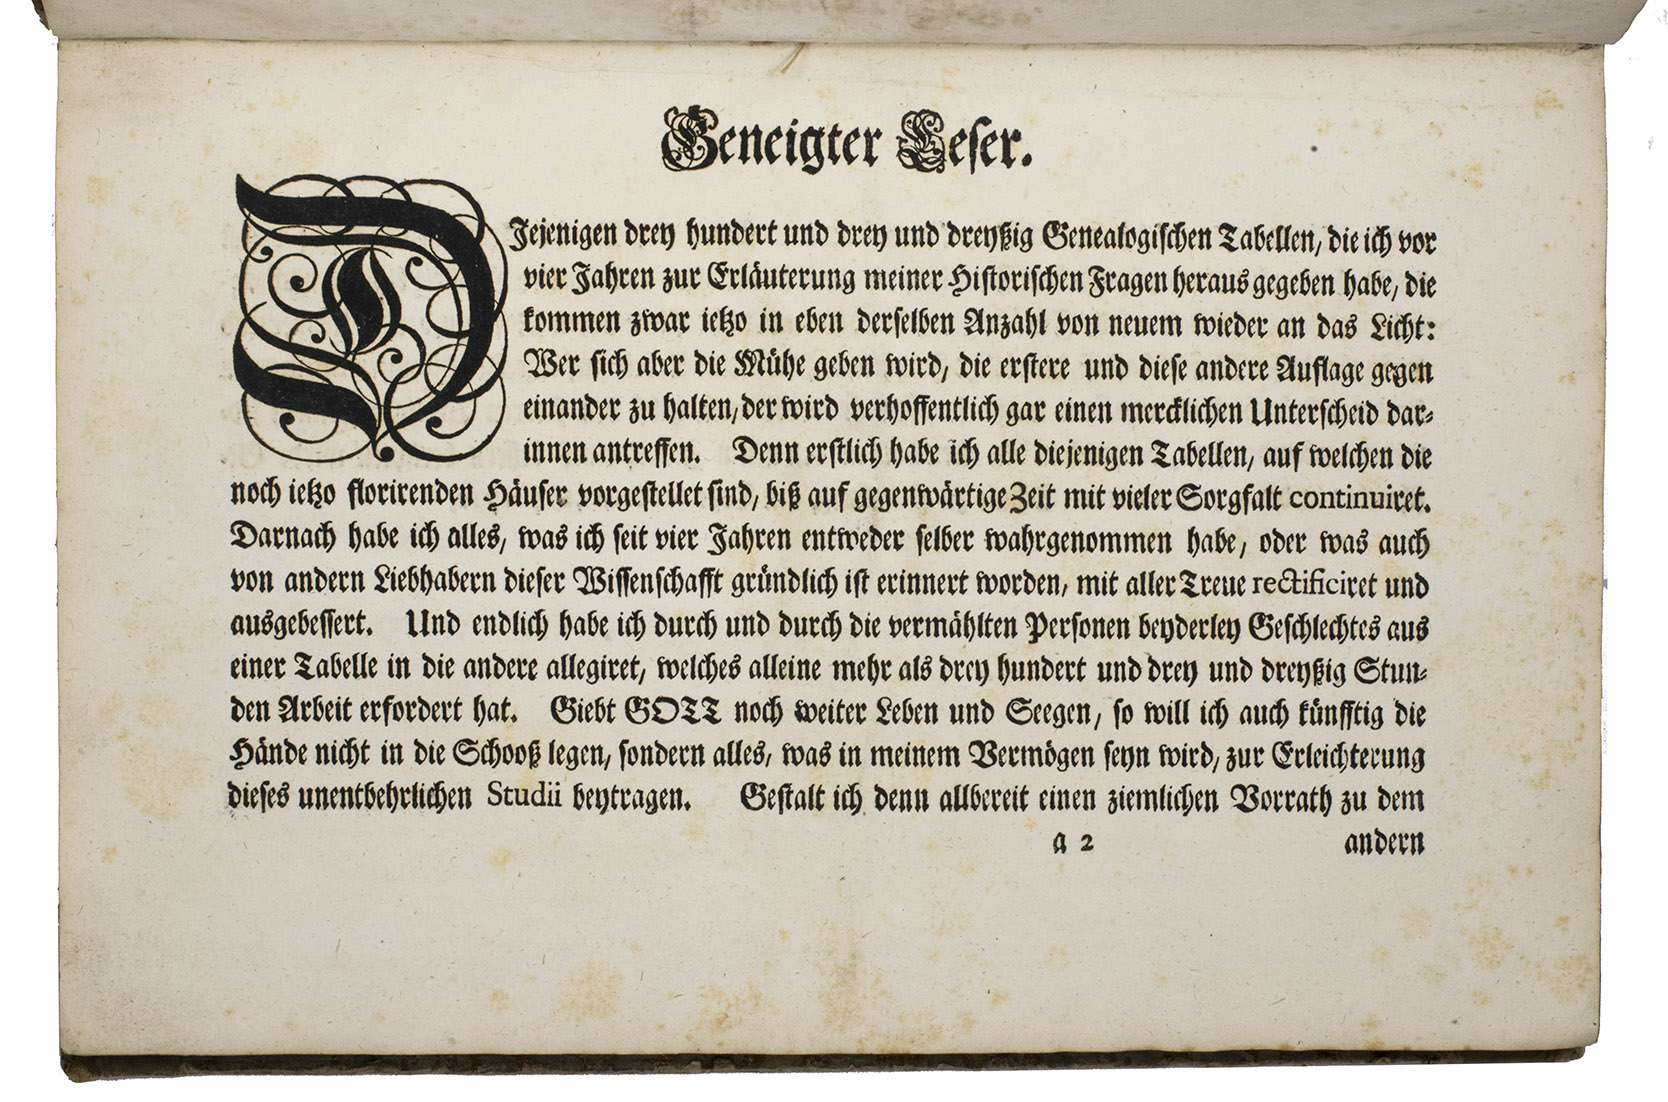 Geneigter Leser.
DJejenigen drey hundert und drey und dreyßig Genealogischen Tabellen, die ich vor
vier Jahren zur Erläuterung meiner Historischen Fragen heraus gegeben habe, die
kommen zwar ietzo in eben derselben Anzahl von neuem wieder an das Licht:
Wer sich aber die Mühe geben wird, die erstere und diese andere Auflage gegen
einander zu halten, der wird verhoffentlich gar einen mercklichen Unterscheid dar-
innen antreffen. Denn erstlich habe ich alle diejenigen Tabellen, auf welchen die
noch ietzo florirenden Häuser vorgestellet sind, biß auf gegenwärtige Zeit mit vieler Sorgfalt continuiret.
Darnach habe ich alles, was ich seit vier Jahren entweder selber wahrgenommen habe, oder was auch
von andern Liebhabern dieser Wissenschafft gründlich ist erinnert worden, mit aller Treue rectificiret und
ausgebessert. Und endlich habe ich durch und durch die vermählten Personen beyderley Geschlechtes aus
einer Tabelle in die andere allegiret, welches alleine mehr als drey hundert und drey und dreyßig Stun-
den Arbeit erfordert hat. Giebt GOTT noch weiter Leben und Seegen, so will ich auch künfftig die
Hände nicht in die Schooß legen, sondern alles, was in meinem Vermögen seyn wird, zur Erleichterung
dieses unentbehrlichen Studii beytragen. Gestalt ich denn allbereit einen ziemlichen Vorrath zu dem
a 2 andern